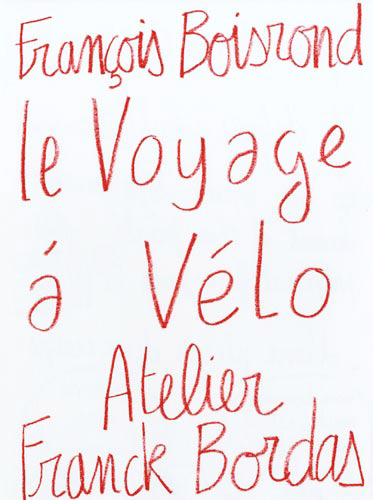 François Boisrond
le Voyage
á Vélo
Atelier
Franck Bordas